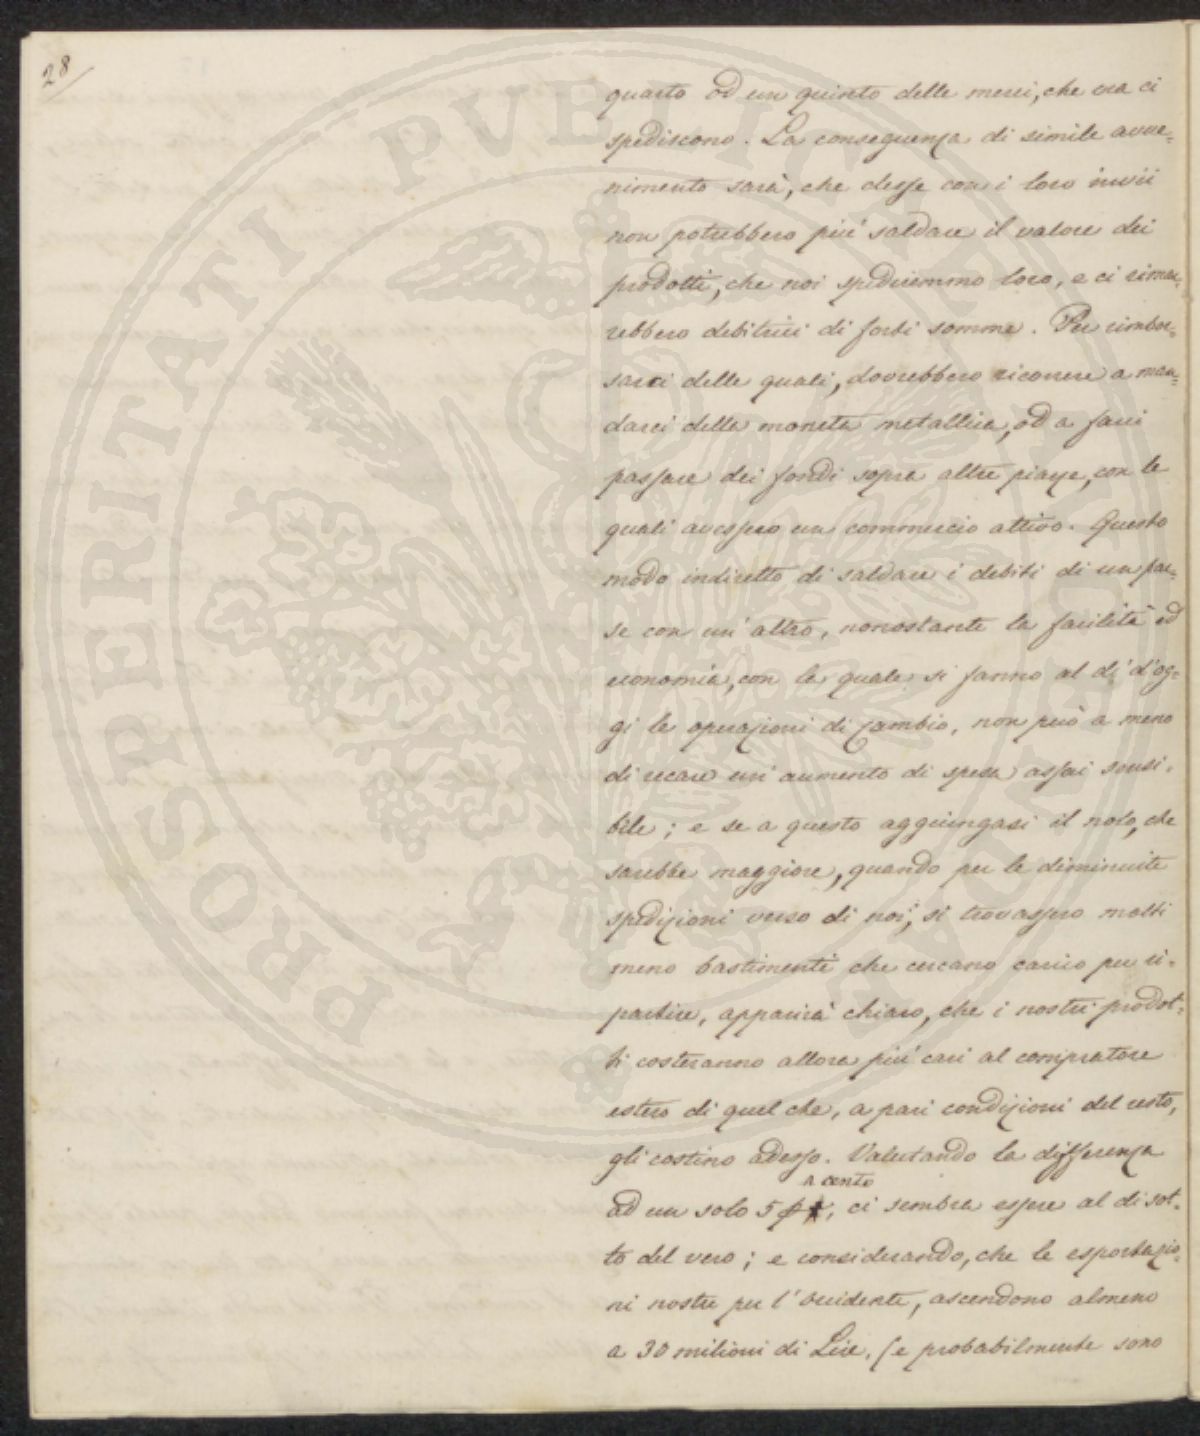 28/
quarto od un quinto delle merci, che ora ci
spediscono. La conseguenza di simile avve=
nimento sarà, che desse con i loro invii
non potrebbero più saldare il valore dei
prodotti, che noi spediremmo loro, e ci rimar=
rebbero debitrici di forti somme. Per rimbor=
sarci delle quali, dovrebbero ricorrere a man=
darci della moneta metallica, od a farci
passare dei fondi sopra altre piazze, con le
quali avessero un commercio attivo. Questo
modo indiretto di saldare i debiti di un pae=
se con un' altro, nonostante la facilità ed
economia, con la quale si fanno al dì d'og=
gi le operazioni di cambio, non può a meno
di recare un' aumento di spesa assai sensi=
bile; e se a questo aggiungasi il nolo, che
sarebbe maggiore, quando per le diminuite
spedizioni verso di noi, si trovassero molti
meno bastimenti che cercano carico per ri=
partire, apparirà chiaro, che i nostri prodot=
ti costeranno allora più cari al compratore
estero di quel che, a pari condizioni del resto,
gli costino adesso. Valutando la differenza
ad un solo 5 p cento, ci sembra essere al di sot=
to del vero; e considerando, che le esportazio=
ni nostre per l' occidente, ascendono almeno
a 30 milioni di Lire, (e probabilmente sono
PROSPERITATI PVBLICAE AVGENDAE